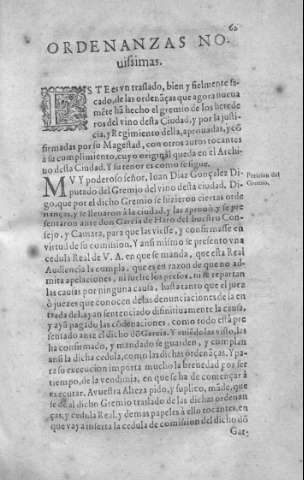 62
ORDENANZAS NO-
uissimas.
ESTE es vn traslado, bien y fielmente sa-
cado, de las ordenãças que agora nueua
mẽte hã hecho el gremio de los herede
ros del vino desta Ciudad, y por la justi-
cia, y Regimiento della, aprouadas, y cõ
firmadas por su Magestad, con otros autos tocantes
à su cumplimiento, cuyo original queda en el Archi-
uo desta Ciudad. Y su tenor es como se sigue.
MVY poderoso señor, Iuan Diaz Gonçalez Di-
putado del Gremio del vino desta ciudad. Di-
Peticion del
Gremio.
go, que por el dicho Gremio se hizieron ciertas orde
nanças, y se lleuaron à la ciudad, y las aprouò, y pre
sentaron ante don Garcia de Haro del nuestro Con-
sejo, y Camara, para que las viesse, y confirmasse en
virtud de su comision. Y ansi mismo se presento vna
cedula Real de V. A. en que se manda, que esta Real
Audiencia la cumpla, que es en razon de que no ad-
mita apelaciones, ni suelte los presos, ni se repartan
las causas por ninguna causa, hasta tanto que el juez
ò juezes que conocen de las denunciaciones de la en
trada del, ayan sentenciado difinitiuamente la causa,
y aya pagado las cõdenaciones, como todo està pre
sentado ante el dicho dõ Garcia. Y auiẽdolas visto, las
ha confirmado, y mandado se guarden, y cumplan
ansi la dicha cedula, como las dichas ordenãças, Y pa-
ra su execucion importa mucho la breuedad por ser
tiempo, de la vendimia, en que se ha de començar à
executar. A vuestra Alteza pido, y suplico, mãde, que
se dè al dicho Gremio traslado de las dichas ordenan
ças, y cedula Real, y demas papeles à ello tocantes, en
que vaya inserta la cedula de comission del dicho dõ
Gar-